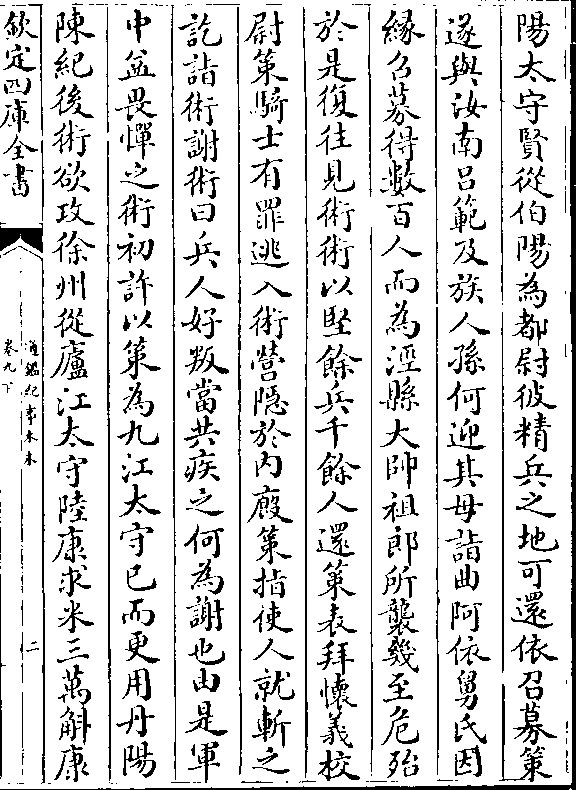 陽太守賢從伯陽為都尉彼精兵之地可還依召募策
遂與汝南吕範及族人孫何迎其母詣曲阿依舅氏因
緣召募得數百人而為涇縣大帥祖郎所襲幾至危殆
於是復往見術術以堅餘兵千餘人還策表拜懷義校
尉策騎士有罪逃入術營隠於内廄策指使人就斬之
訖詣術謝術曰兵人好叛當共疾之何為謝也由是軍
中益畏憚之術初許以策為九江太守已而更用丹陽
陳紀後術欲攻徐州從廬江太守陸康求米三萬斛康
欽定四庫全書
通鑑紀事本末
卷九下
二